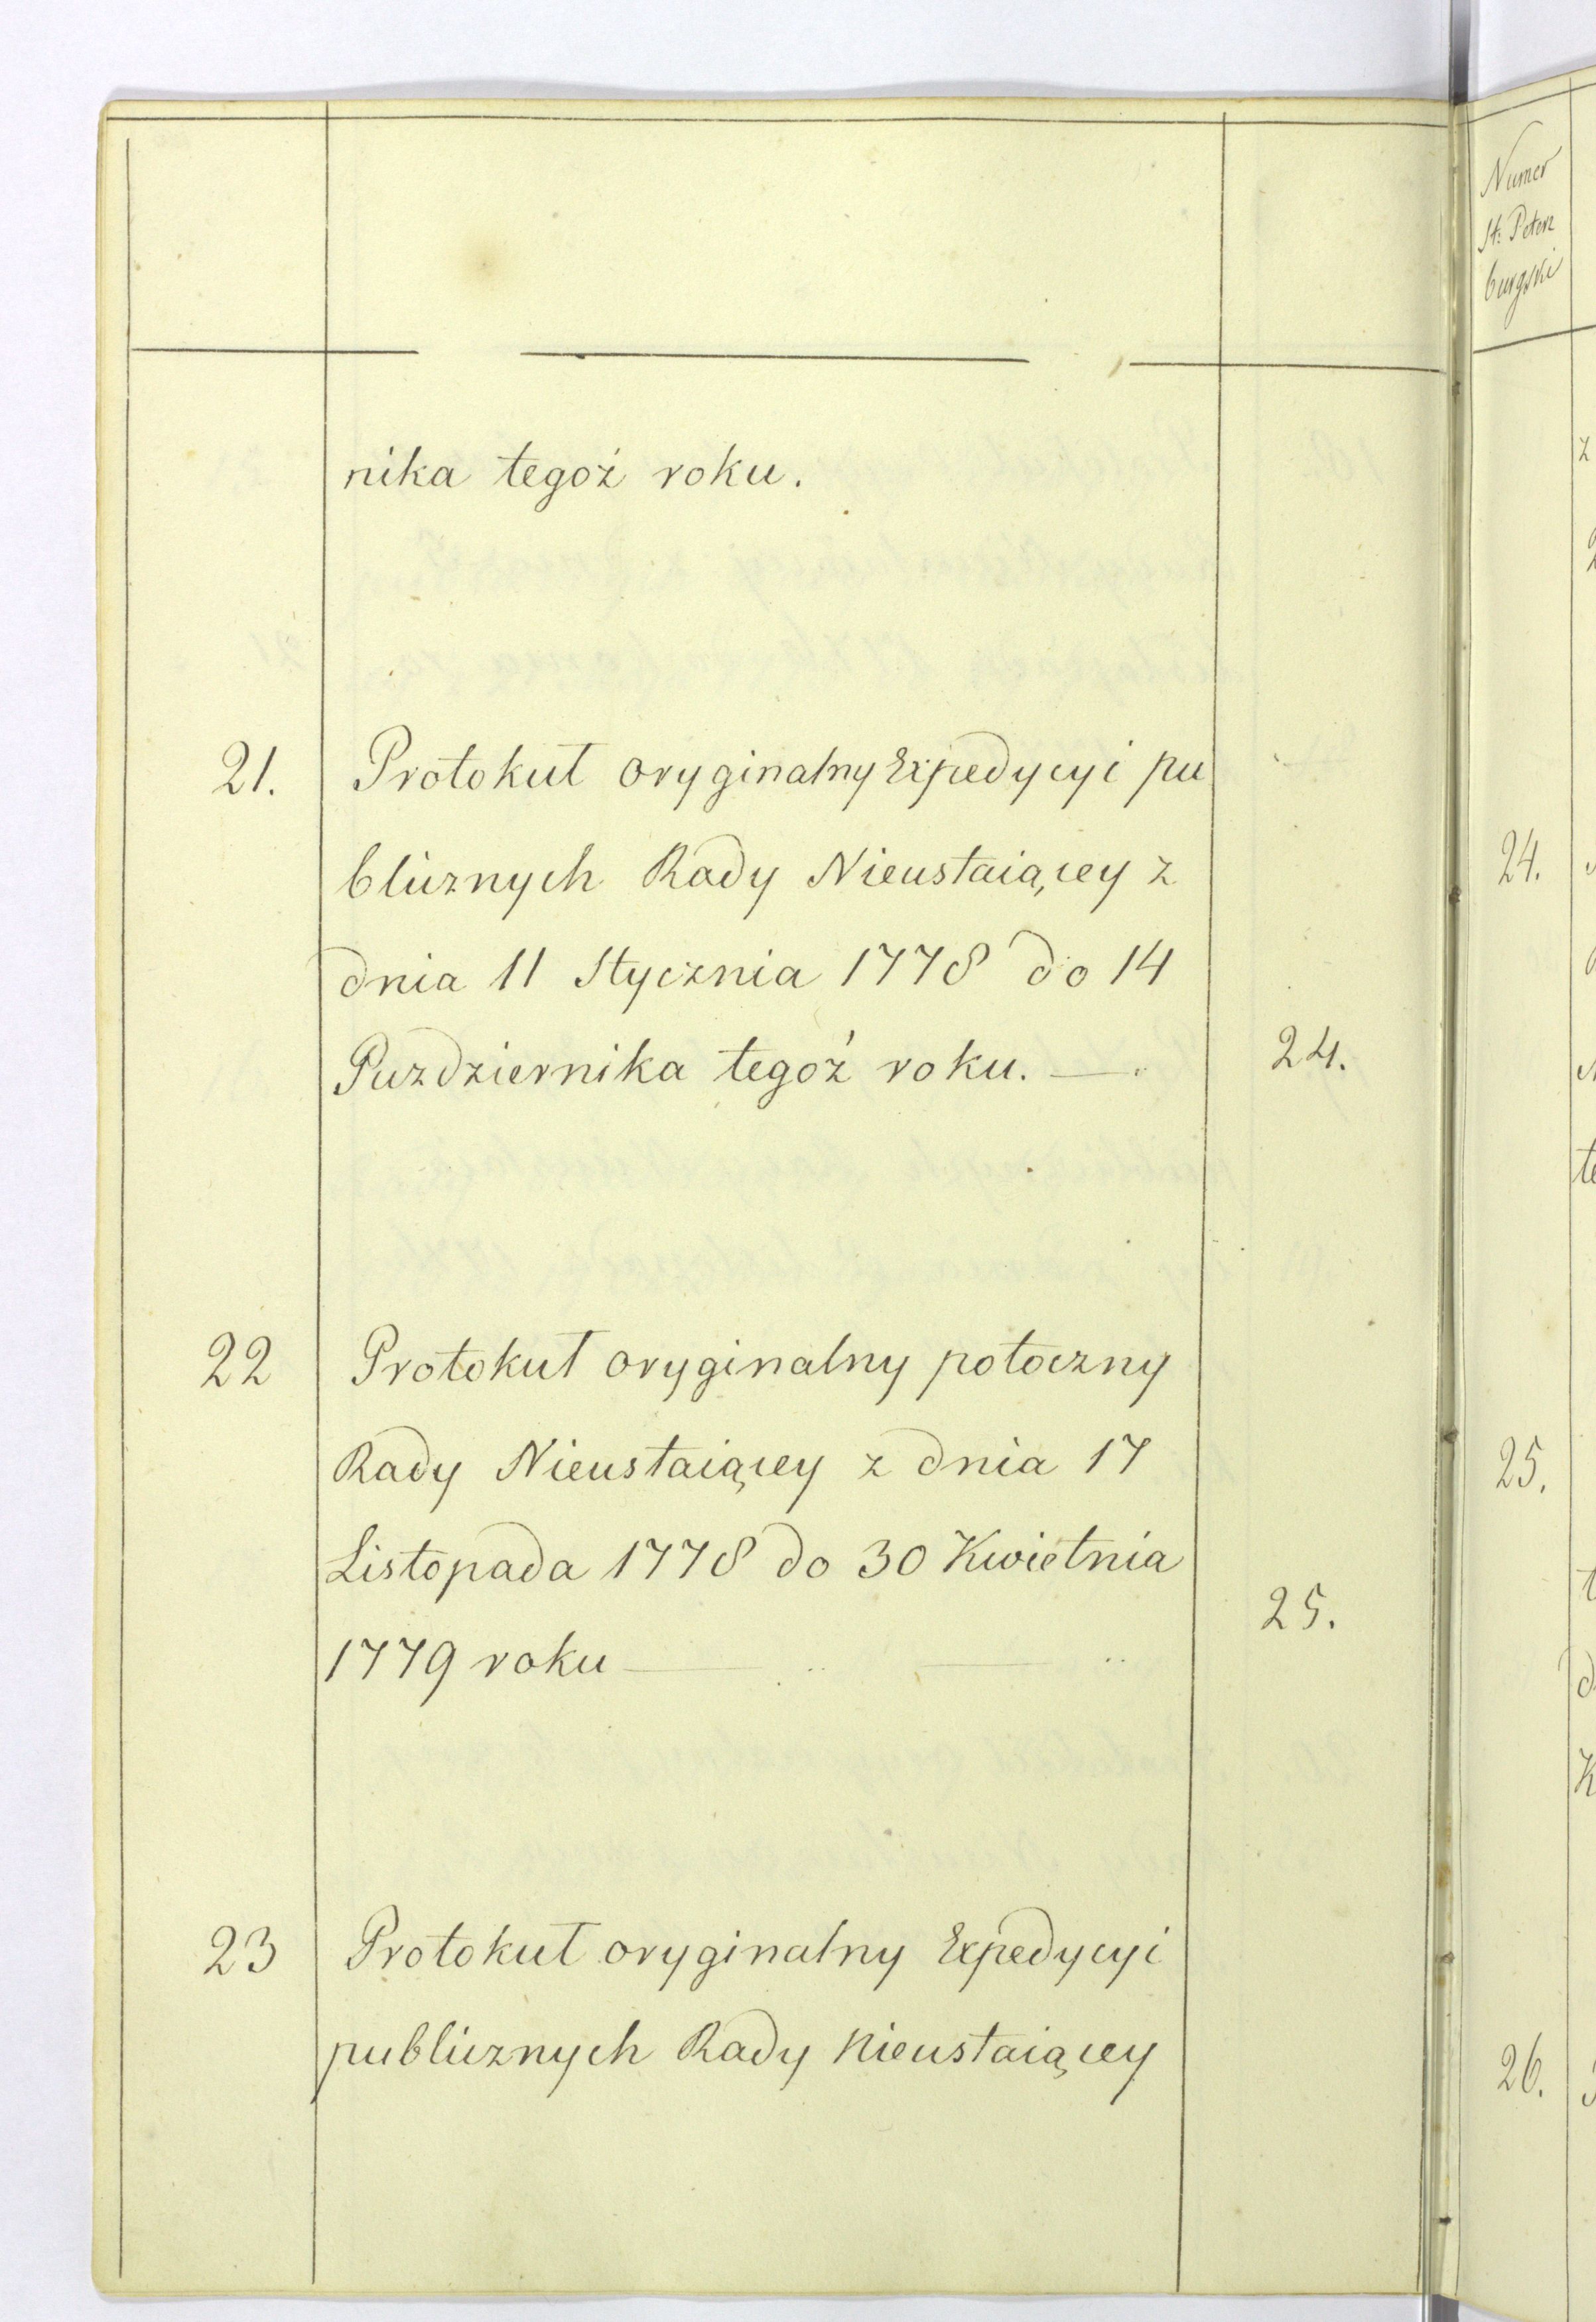 nika tegoż roku.
21. Protokuł oryginalny Expedycyi pu
blicznych Rady Nieustaiącey z
dnia 11 Stycznia 1778 do 14
Puzdziernika tegoż roku. —
24.
22 Protokuł oryginalny potoczny
Rady Nieustaiącey z dnia 17
Listopada 1778 do 30 Kwietnia
1779 roku — —
25.
23 Protokuł oryginalny Expedycyi
publicznych Rady Nieustaiącey
Numer
St: Peters
burgski
z
24.
te
25.
K
26.